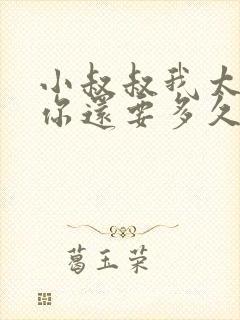 小叔叔我太
你還要多久
葛玉荣